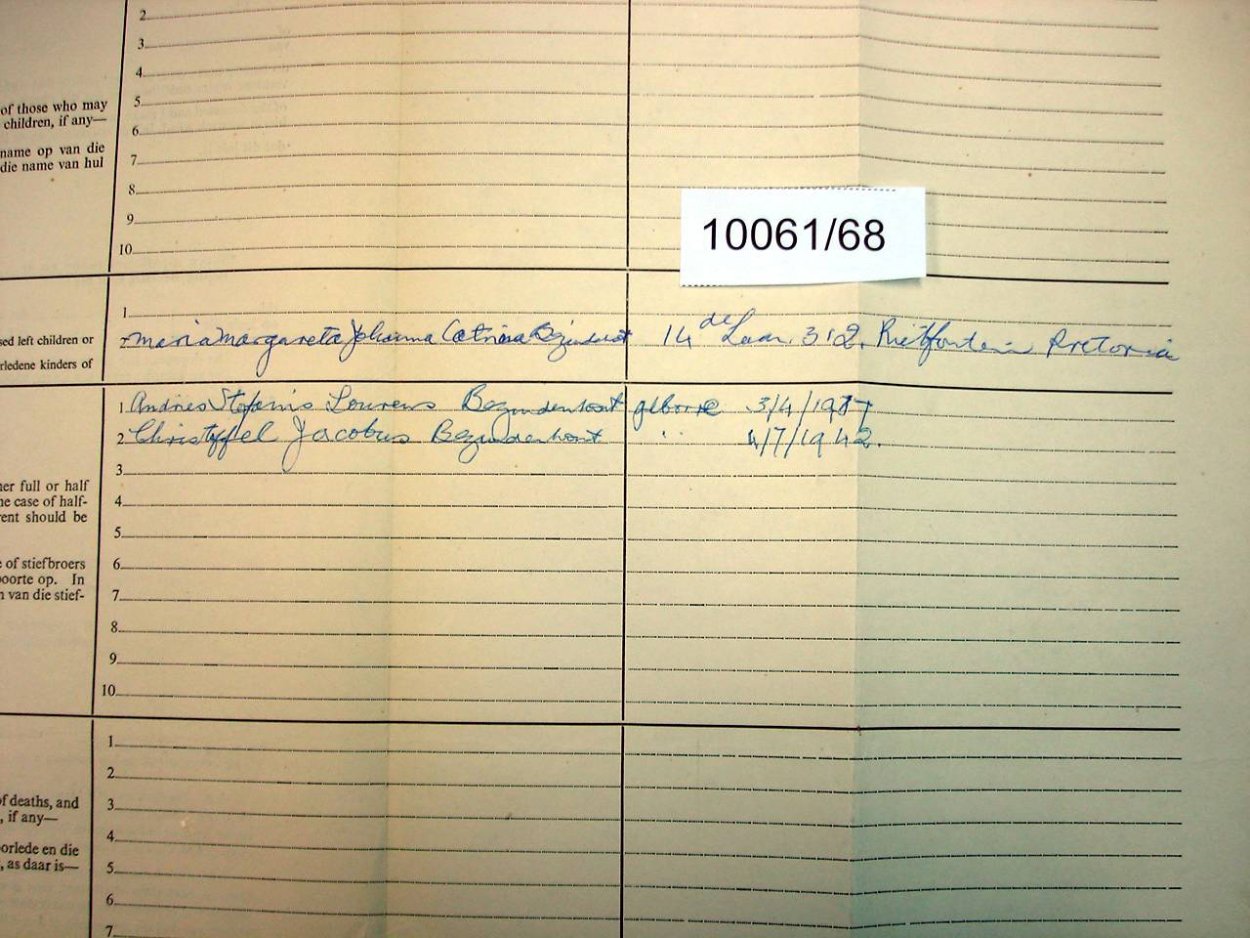 2.
3.
4.
of those who may
5.
children, if any—
6.
name op van die
7.
die name van hul
8.
9.
10.
10061/68
1.
sed left children or
2. Maria Margareta Johanna Catrina Bezuidenhout 14de Laan 312. Rietfontein Pretoria
rledene kinders of
1 Andries Stefanis Lourens Bezuidenhout gebore 3/4/1937
2. Christoffel Jacobus Bezuidenhout " 4/7/1942.
3.
ner full or half
4.
ne case of half-
rent should be
5.
e of stiefbroers
6.
poorte op. In
7.
n van die stief-
8.
9.
10.
1.
2.
of deaths, and
3.
, if any—
4.
orlede en die
5.
, as daar is—
6.
7.